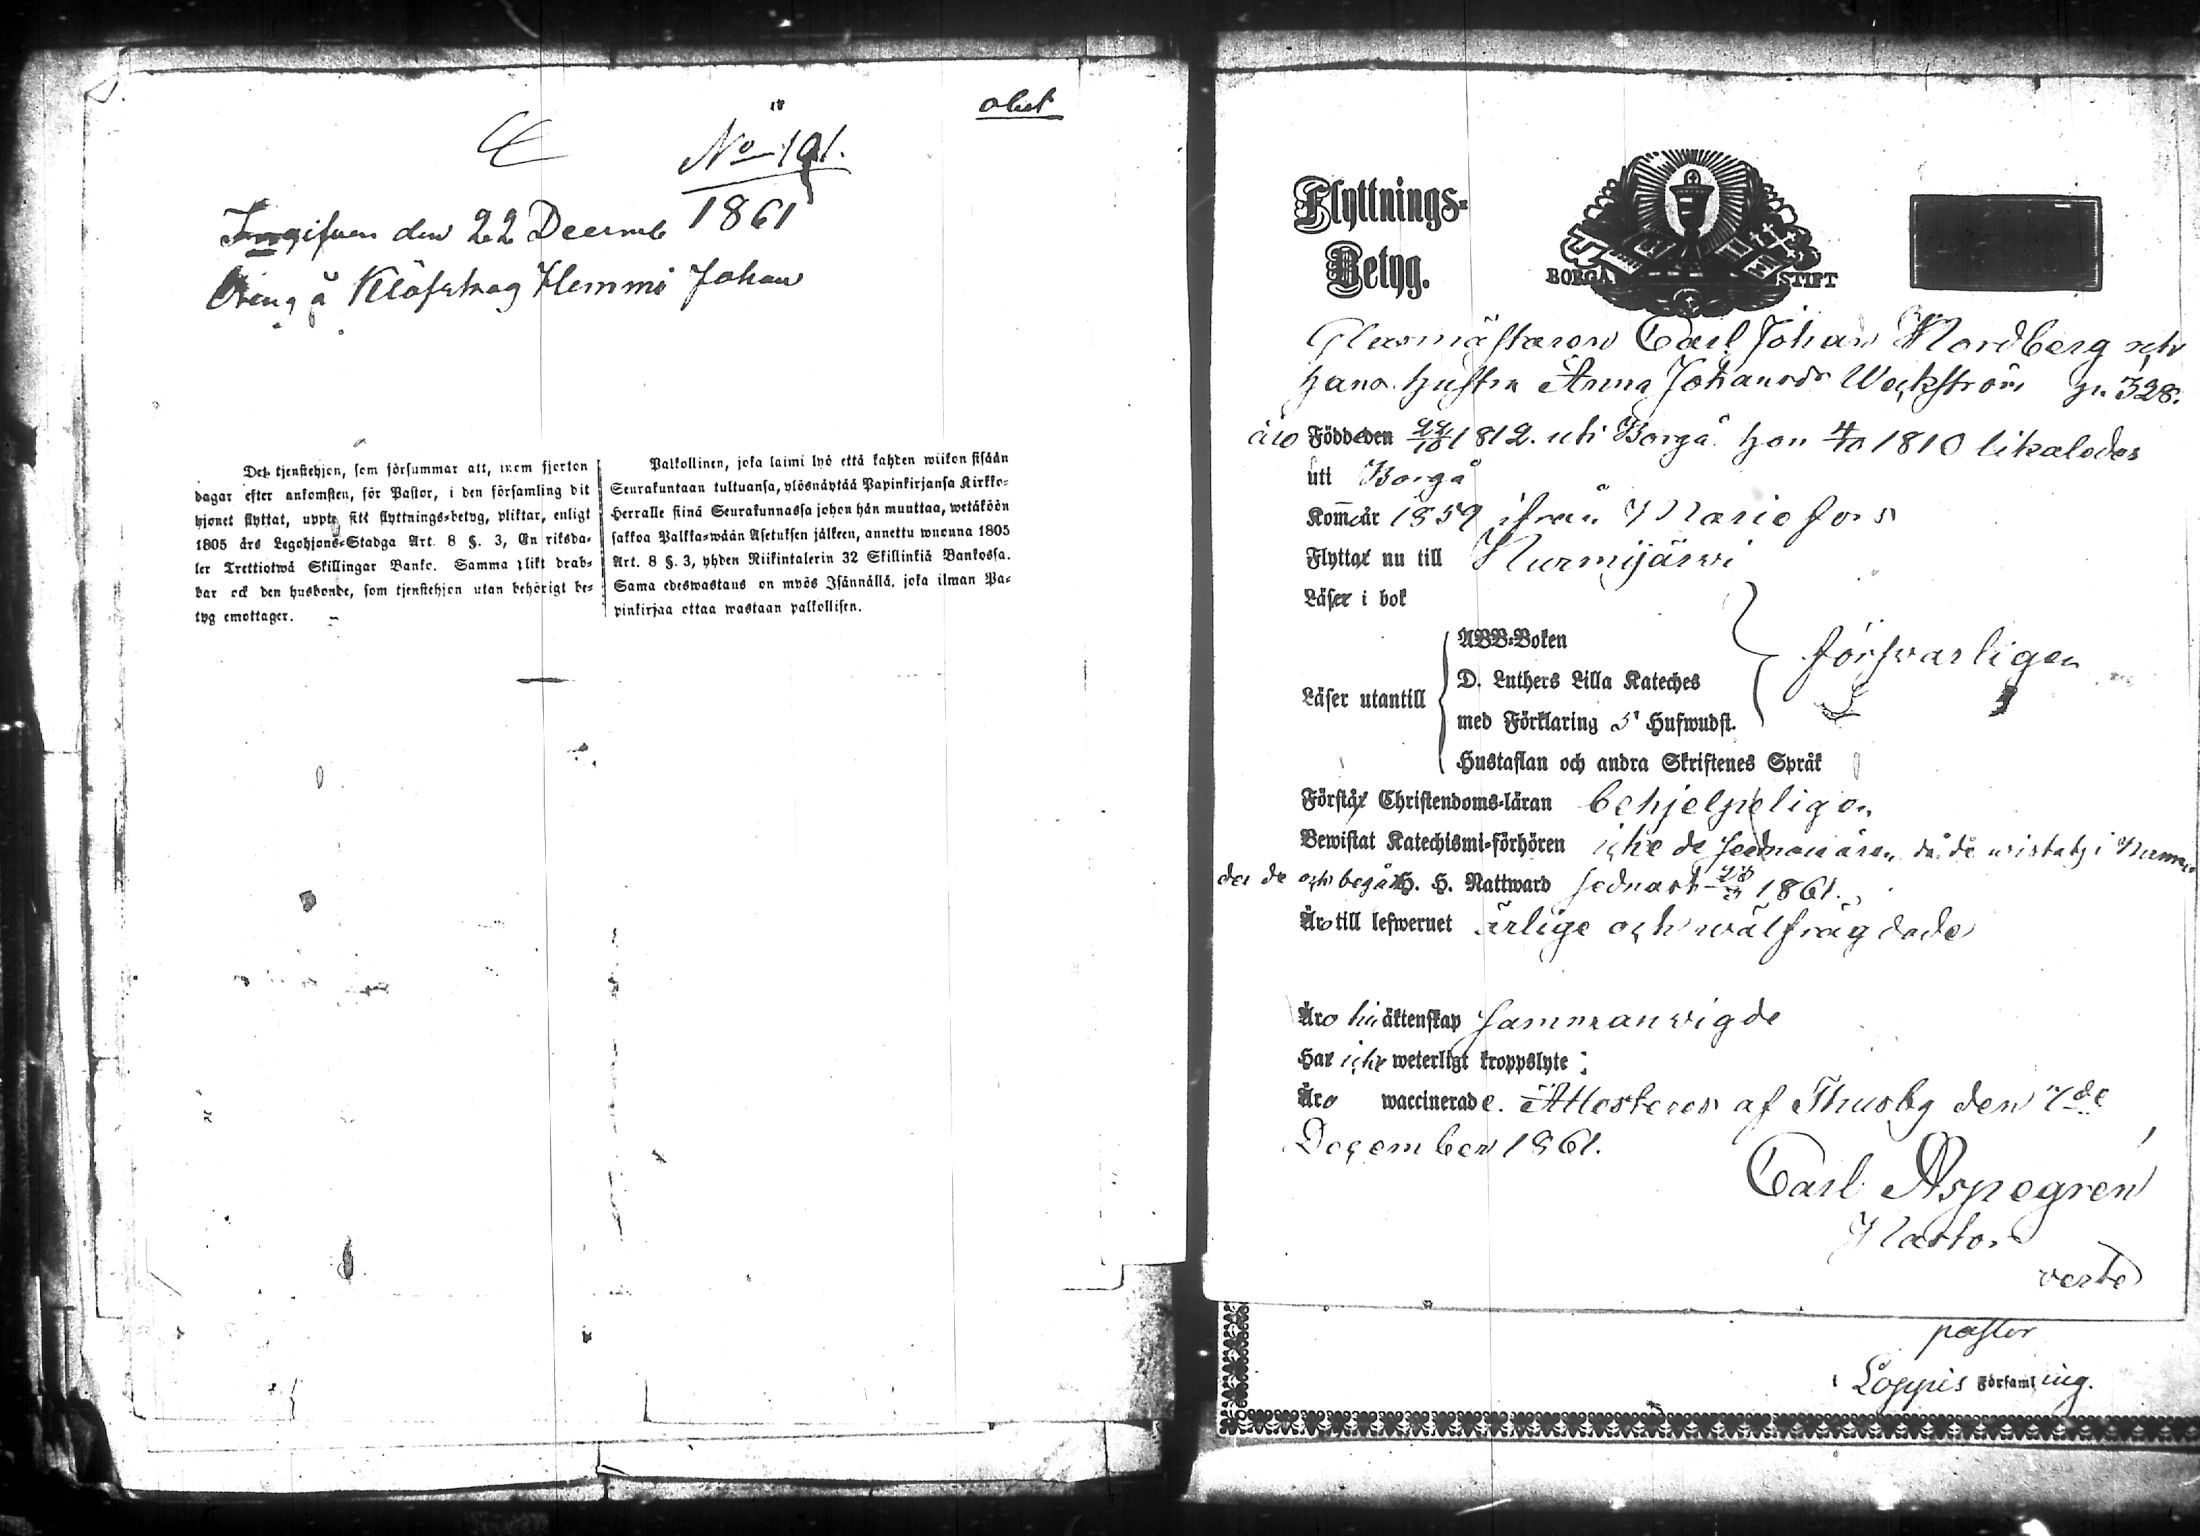 No 191.
1861
Ingifven den 22 Decemb
Dreng å Klöfskog Hemmi Johan
Den tjenstehjon, som försummar att, inom fjorton
dagar efter ankomsten, för Pastor, i den församling dit
hjonet flyttat, uppte sitt flyttnings-betyg, pliktar, enligt
1805 års Legohjons-Stadga Art. 8 §. 3, En riksda-
ler Trettiotwå Skillingar Banko. Samma plikt drab-
bar ock den husbonde, som tjenstehjon utan behörigt be-
tyg emottager.
Palkollinen, joka laimi lyö että kahden wiikon sisään
Seurakuntaan tultuansa, ylösnäyttää Papinkirjansa Kirkko-
Herralle siinä Seurakunnassa johon hän muuttaa, wetäköön
sakkoa Palkka-wään Asetuksen jälkeen, annettu wuonna 1805
Art. 8 §. 3, yhden Riikintalerin 32 Skillinkiä Bankossa.
Sama edeswastaus on myös Isännällä, joka ilman Pa-
pinkirjaa ottaa wastaan palkollisen.
Flyttnings-
Betyg.
BORGÅ STIFT
Glasmästaren Carl Johan Nordberg och
hans hustru Anna Johansdr Weckström p. 328.
äro Födde den 22/10 1812. uti Borgå hon 4/10 1810 likaledes
uti Borgå
Kom år 1859 ifrån Mariefors
Flyttar nu till Nurmijärvi
Läser i bok
Läser utantill
ABB-Boken
D. Luthers Lilla Kateches
med Förklaring 5 Hufwudst.
Hustaflan och andra Skriftenes Språk
försvarligen
Förstår Christendoms-läran behjelpeligen
Bewistat Katechismi-förhören icke de sednare åren, då de vistats i
der de och begått H. H. Nattward sednast 1861.
Äro till lefwernet ärlige och wälfrägdade
Äro i äktenskap sammanvigde
Har icke weterligt kroppslyte;
Äro waccinerade. Attesteres af Thusby den 7de
December 1861.
Carl Aspegren
Pastor
verte
pastor
i Loppis Församling.